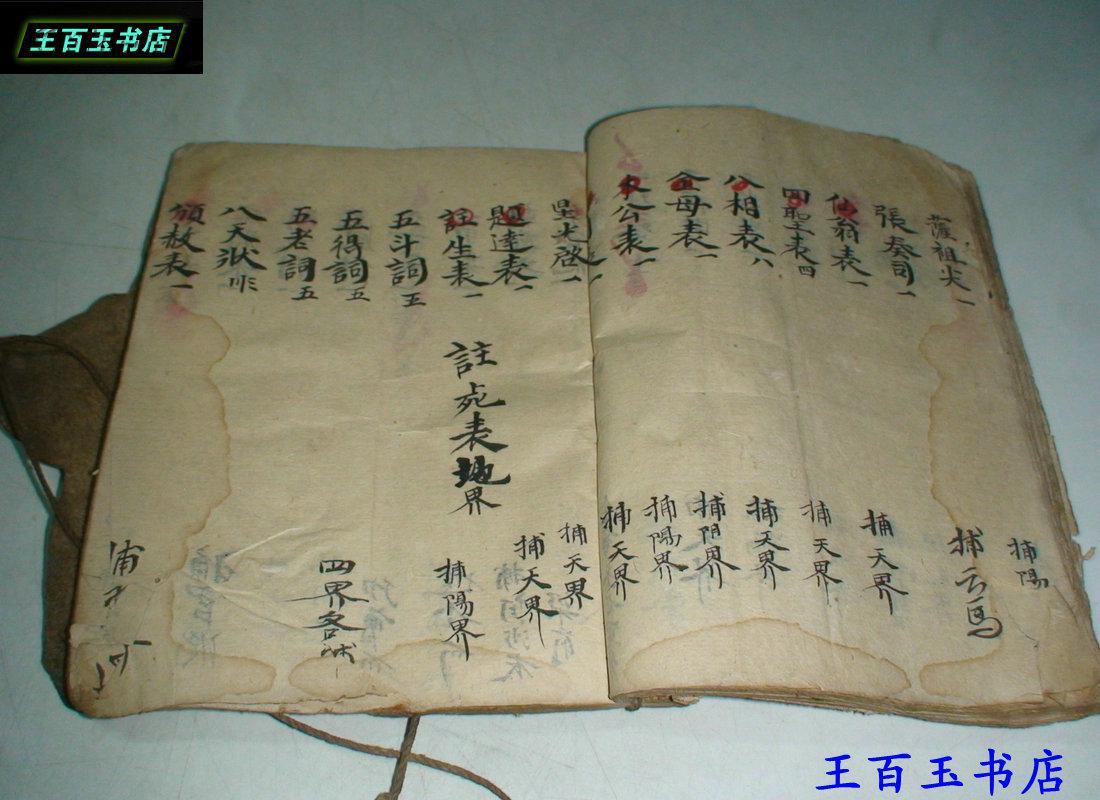 王百玉书店
薩祖尖一
張奏司一
仙翁表一
四聖表四
八相表八
金母表一
木公表一
星光啓一
題達表一
註生表一
五斗詞五
五得詞五
五老詞五
八天狀
頒赦表一
捕陽
捕云馬
捕天界
捕天界
捕天界
捕阴界
捕陽界
捕天界
捕天界
捕天界
捕陽界
註死表地界
四界各
王百玉书店